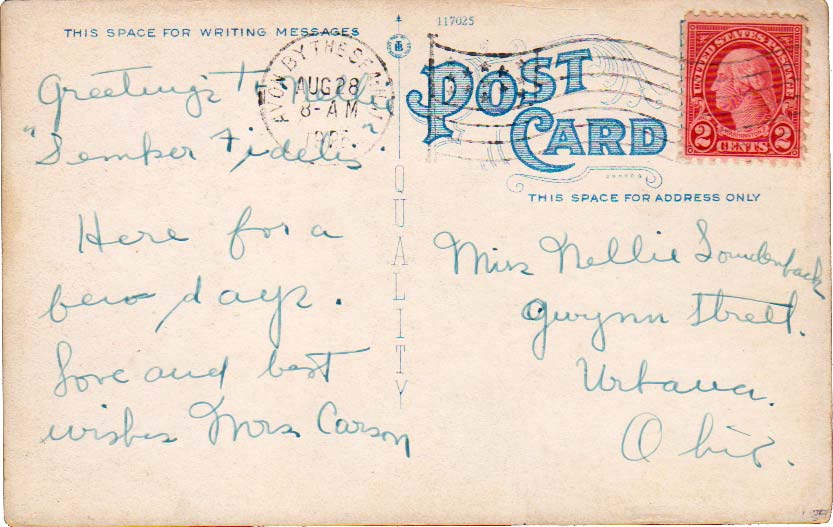 THIS SPACE FOR WRITING MESSAGES
117025
AVON BY THE SEA
AUG 28
8-AM
POST
CARD
UNITED STATES POSTAGE
WASHINGTON
2 CENTS 2
THIS SPACE FOR ADDRESS ONLY
QUALITY
Greetings to Nellie
"Semper Fidelis"
Here for a
few days.
Love and best
wishes Mrs Carson
Miss Nellie Loudenback
Gwynn Street.
Urbana.
Ohio.